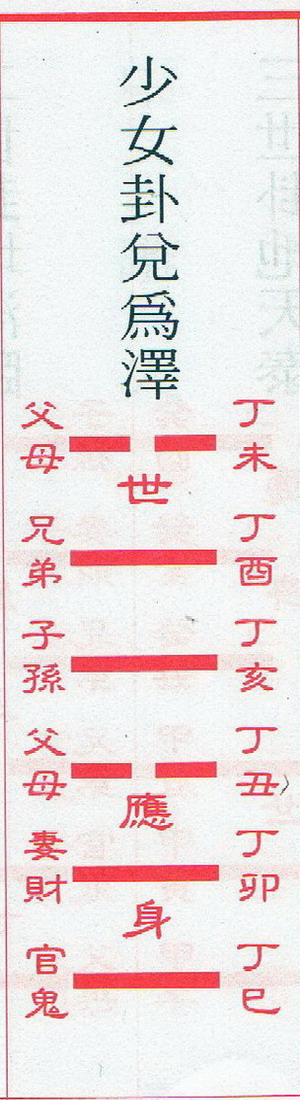 少女卦兌爲澤
丁未
父母
世
丁酉
兄弟
丁亥
子孫
丁丑
父母
應
丁卯
妻財
身
丁巳
官鬼